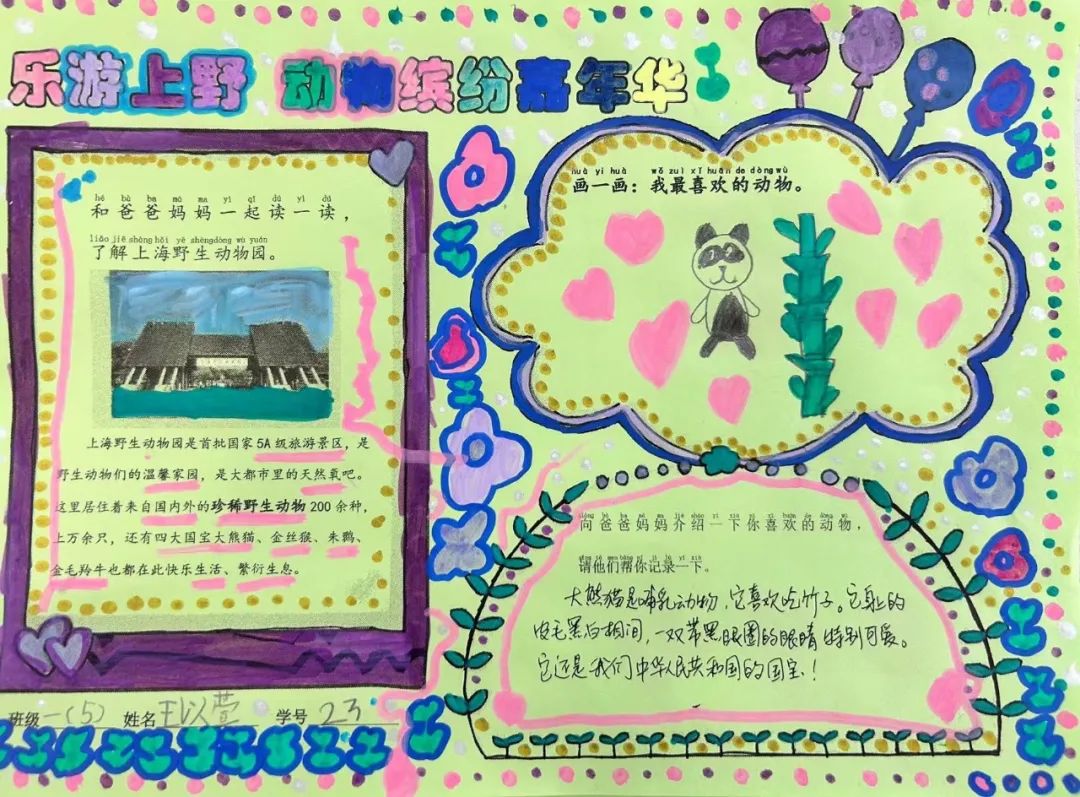 乐游上野 动物缤纷嘉年华
hé bà ba mā ma yì qǐ dú yì dú
和爸爸妈妈一起读一读，
liǎo jiě shàng hǎi yě shēng dòng wù yuán
了解上海野生动物园。
上海野生动物园是首批国家5A级旅游景区，是
野生动物们的温馨家园，是大都市里的天然氧吧。
这里居住着来自国内外的珍稀野生动物200余种，
上万余只，还有四大国宝大熊猫、金丝猴、朱鹮、
金毛羚牛也都在此快乐生活、繁衍生息。
班级 一(5) 姓名 王以萱 学号 23
huà yi huà wǒ zuì xǐ huān de dòng wù
画一画：我最喜欢的动物。
向爸爸妈妈介绍一下你喜欢的动物，
请他们帮你记录一下。
大熊猫是哺乳动物，它喜欢吃竹子。它身上的
皮毛黑白相间，一双带黑眼圈的眼睛特别可爱。
它还是我们中华人民共和国的国宝！